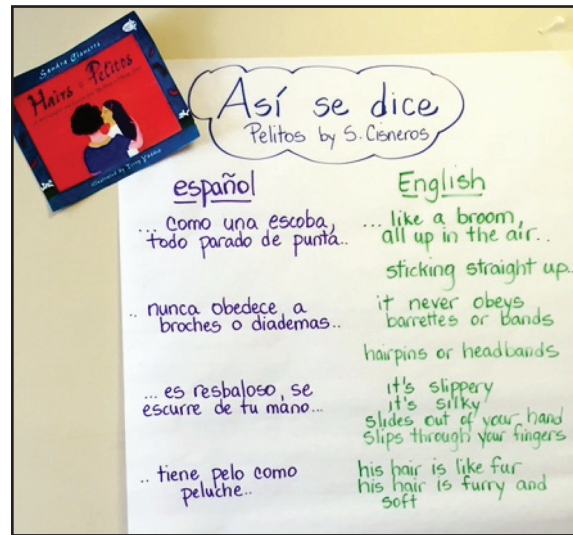 Sandra Cisneros
Hairs Pelitos
Illustrated by Terry Ybáñez
Así se dice
Pelitos by S. Cisneros
español
... como una escoba,
todo parado de punta..
.. nunca obedece a
broches o diademas..
... es resbaloso, se
escurre de tu mano...
.. tiene pelo como
peluche..
English
... like a broom,
all up in the air..
sticking straight up..
it never obeys
barrettes or bands
hairpins or headbands
it's slippery
it's silky
slides out of your hand
slips through your fingers
his hair is like fur
his hair is furry and
soft